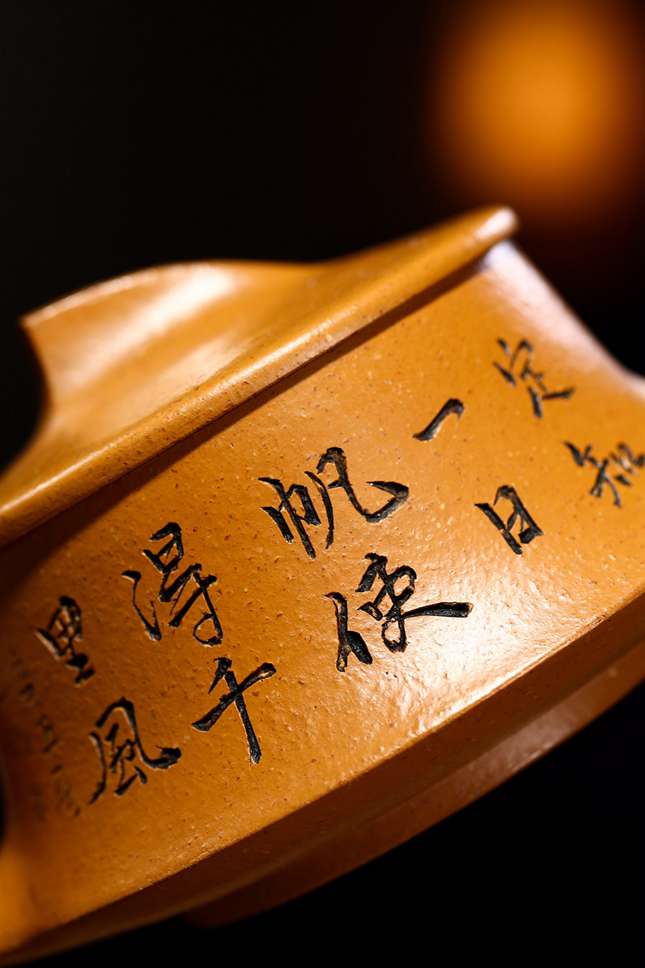 定知
一日
帆使
得千
里風